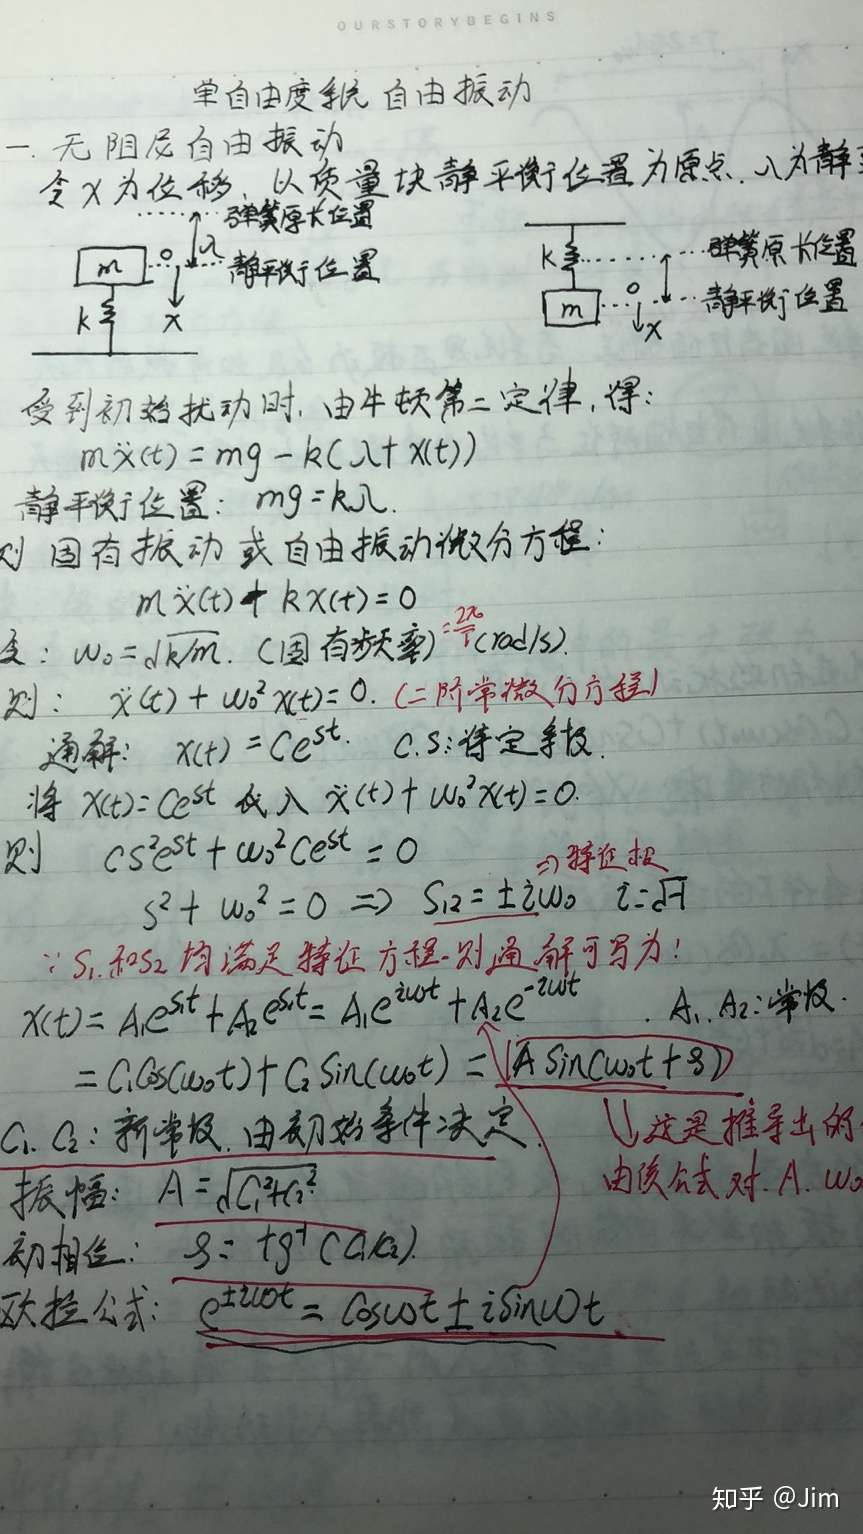 OURSTORYBEGINS
单自由度系统自由振动
一.无阻尼自由振动
令x为位移,以质量块静平衡位置为原点.λ为静
弹簧原长位置
λ
m
0
静平衡位置
k
x
k
弹簧原长位置
m
0
静平衡位置
x
受到初始扰动时,由牛顿第二定律,得:
mẍ(t)=mg-k(λ+x(t))
静平衡位置: mg=kλ.
则 固有振动或自由振动微分方程:
mẍ(t)+kx(t)=0
: ω₀=√k/m. (固有频率)=2π/T(rad/s).
则: ẍ(t)+ω₀²x(t)=0. (二阶常微分方程)
通解: x(t)=Ceˢᵗ. C.S:待定系数.
将x(t)=Ceˢᵗ代入ẍ(t)+ω₀²x(t)=0.
则 Cs²eˢᵗ+ω₀²Ceˢᵗ=0
⇒特征根
s²+ω₀²=0 ⇒ S₁₂=±iω₀ i=√-1
∵S₁和S₂均满足特征方程.则通解可写为:
x(t)=A₁e^{s₁t}+A₂e^{s₁t}=A₁e^{iωt}+A₂e^{-iωt}. A₁.A₂:常数.
=C₁Cos(ω₀t)+C₂Sin(ω₀t)=(ASin(ω₀t+φ))
C₁.C₂:新常数.由初始条件决定.
这是推导出的
由该公式对.A.ω₀
振幅: A=√C₁²+C₂²
初相位: φ=tg⁻¹(C₁/C₂).
欧拉公式: e^{±iωt}=Cosωt±iSinωt
知乎 @Jim